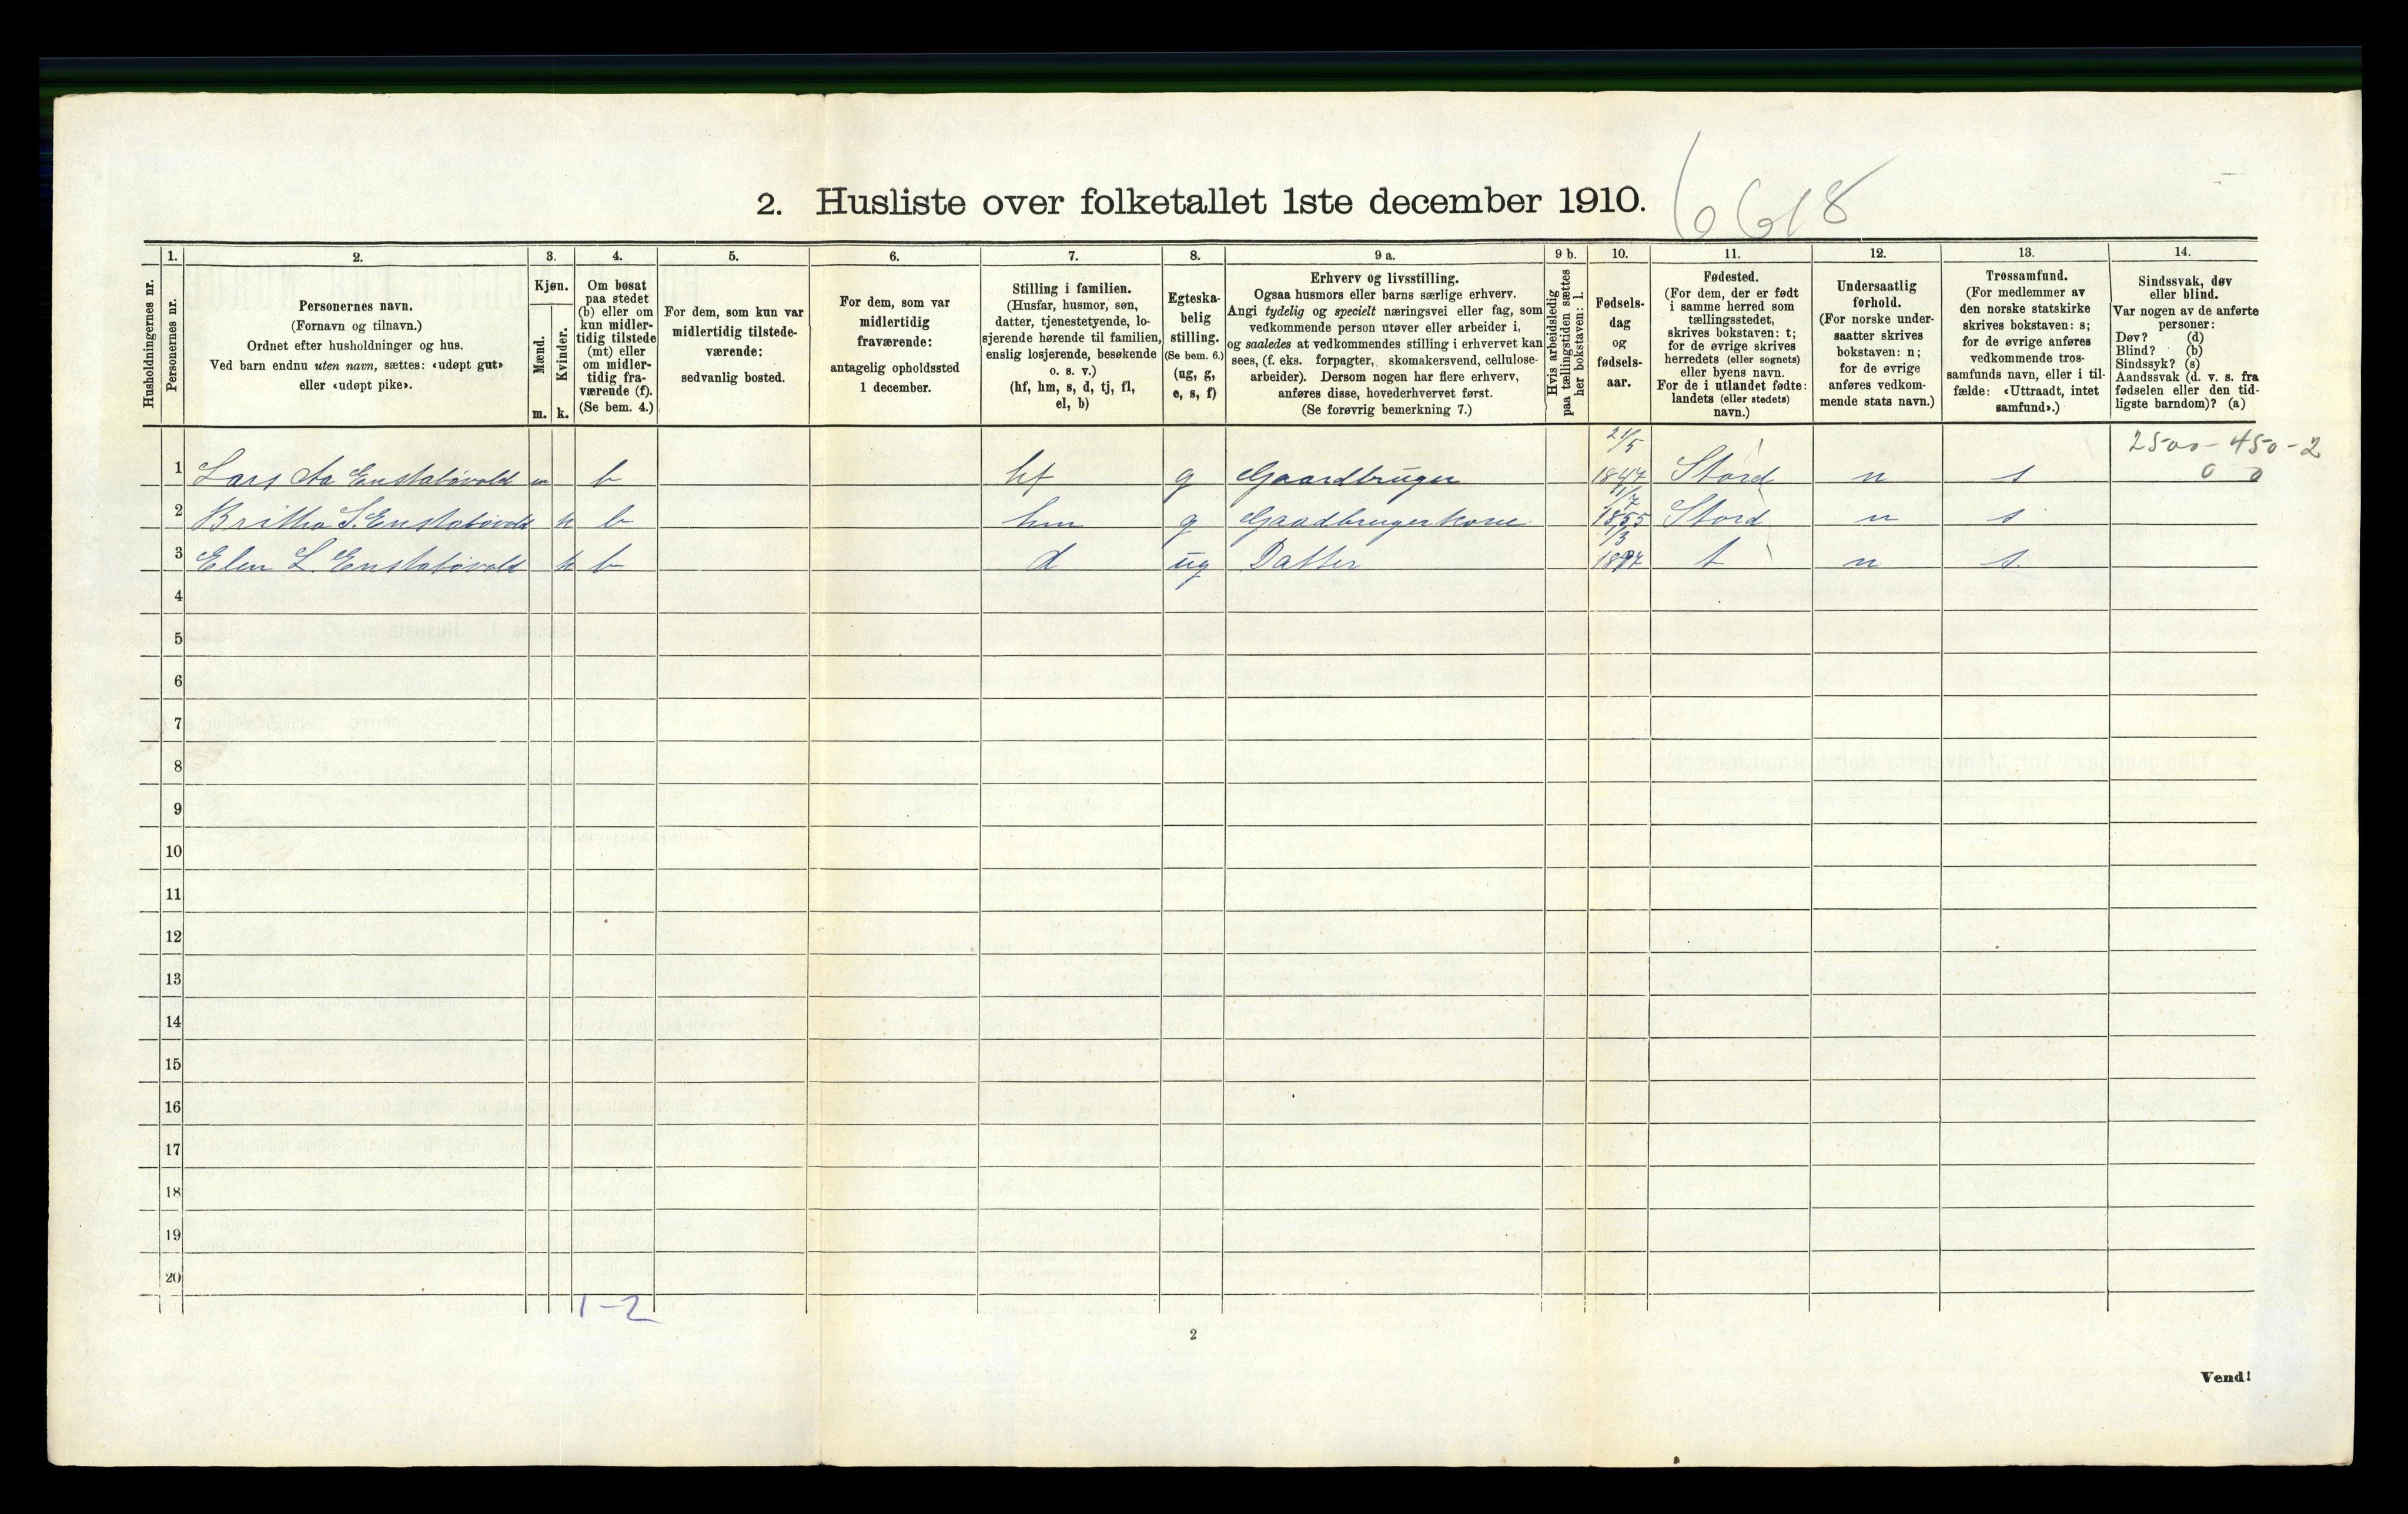 2. Husliste over folketallet 1ste december 1910.
6618
1. 2. 3. 4. 5. 6. 7. 8. 9 a. 9 b. 10. 11. 12. 13. 14.
Husholdningernes nr.
Personernes nr.
Personernes navn.
(Fornavn og tilnavn.)
Ordnet efter husholdninger og hus.
Ved barn endnu uten navn, sættes: «udøpt gut»
eller «udøpt pike».
Kjøn.
Mænd.
Kvinder.
m. k.
Om bosat
paa stedet
(b) eller om
kun midler-
tidig tilstede
(mt) eller
om midler-
tidig fra-
værende (f).
(Se bem. 4.)
For dem, som kun var
midlertidig tilstede-
værende:
sedvanlig bosted.
For dem, som var
midlertidig
fraværende:
antagelig opholdssted
1 december.
Stilling i familien.
(Husfar, husmor, søn,
datter, tjenestetyende, lo-
sjerende hørende til familien,
enslig losjerende, besøkende
o. s. v.)
(hf, hm, s, d, tj, fl,
el, b)
Egteska-
belig
stilling.
(Se bem. 6.)
(ug, g,
e, s, f)
Erhverv og livsstilling.
Ogsaa husmors eller barns særlige erhverv.
Angi tydelig og specielt næringsvei eller fag, som
vedkommende person utøver eller arbeider i,
og saaledes at vedkommendes stilling i erhvervet kan
sees, (f. eks. forpagter, skomakersvend, cellulose-
arbeider). Dersom nogen har flere erhverv,
anføres disse, hovederhvervet først.
(Se forøvrig bemerkning 7.)
Hvis arbeidsledig
paa tællingstiden sættes
her bokstaven: l.
Fødsels-
dag
og
fødsels-
aar.
Fødested.
(For dem, der er født
i samme herred som
tællingsstedet,
skrives bokstaven: t;
for de øvrige skrives
herredets (eller sognets)
eller byens navn.
For de i utlandet fødte:
landets (eller stedets)
navn.)
Undersaatlig
forhold.
(For norske under-
saatter skrives
bokstaven: n;
for de øvrige
anføres vedkom-
mende stats navn.)
Trossamfund.
(For medlemmer av
den norske statskirke
skrives bokstaven: s;
for de øvrige anføres
vedkommende tros-
samfunds navn, eller i til-
fælde: «Uttraadt, intet
samfund».)
Sindssvak, døv
eller blind.
Var nogen av de anførte
personer:
Døv? (d)
Blind? (b)
Sindssyk? (s)
Aandssvak (d. v. s. fra
fødselen eller den tid-
ligste barndom)? (a)
21/5 2500-450-2
1 Lars Aa Enstabøvold m b hf g Gaardbruger 1847 Stord n s 0 0
2 Britha S. Enstabøvold k b hm g Gaadbrugerkone 1855 Stord n s
3 Elen L. Enstabøvold k b d ug Datter t n s.
4
5
6
7
8
9
10
11
12
13
14
15
16
17
18
19
20
1-2
2
Vend!